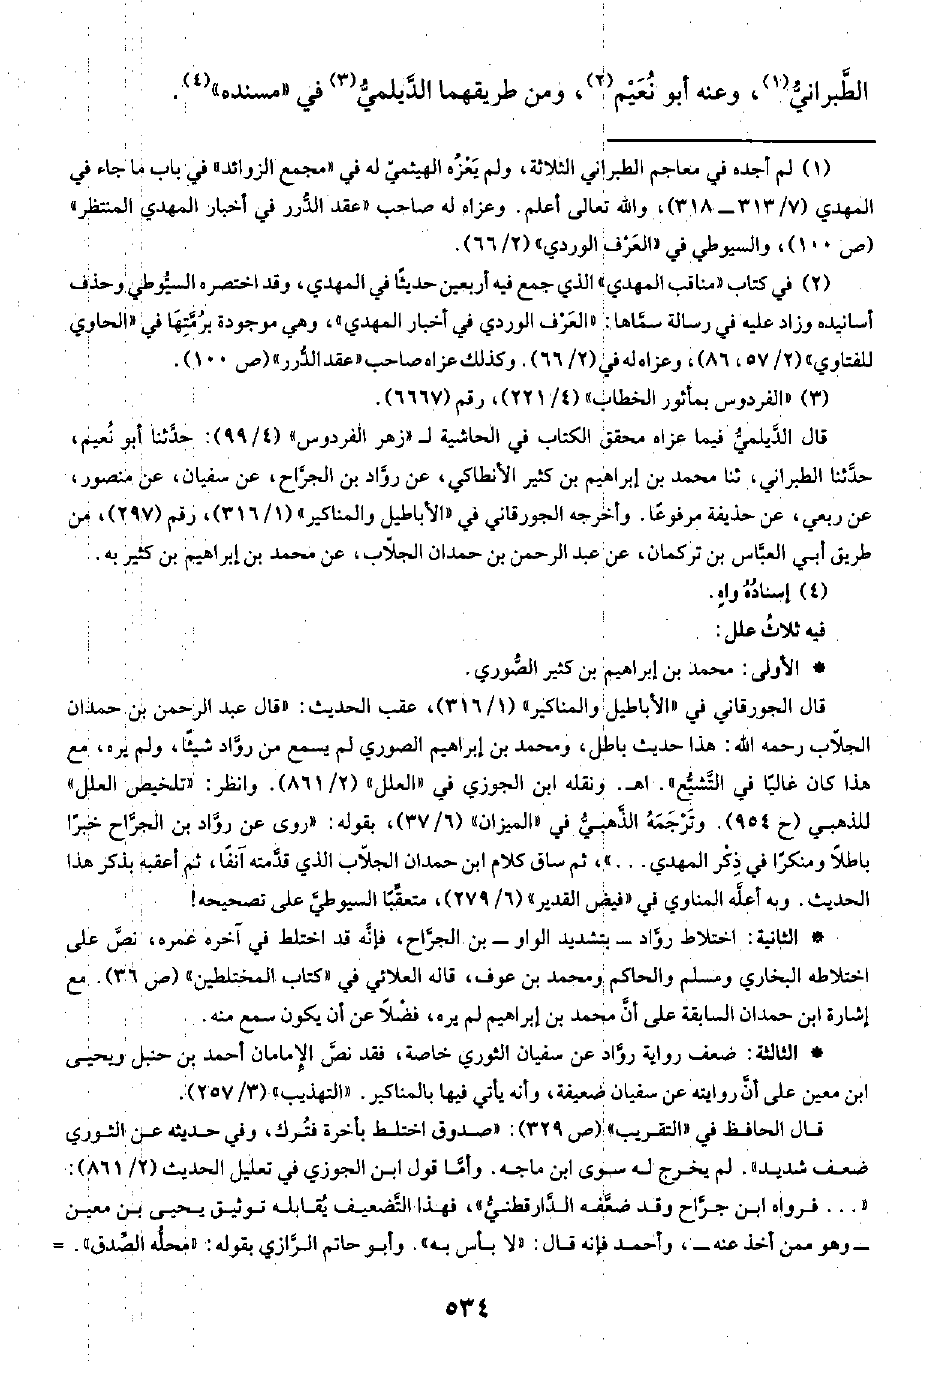 الطَّبرانيُّ(١)، وعنه أبو نُعَيْم(٢)، ومن طريقهما الدَّيلميُّ(٣) في «مسنده»(٤).
(١) لم أجده في معاجم الطبراني الثلاثة، ولم يَعْزُه الهيثميّ له في «مجمع الزوائد» في باب ما جاء في
المهدي (٧/ ٣١٣ ــ ٣١٨)، والله تعالى أعلم. وعزاه له صاحب «عقد الدُّرر في أخبار المهدي المنتظر»
(ص ١٠٠)، والسيوطي في «العَرْف الوردي» (٢/ ٦٦).
(٢) في كتاب «مناقب المهدي» الذي جمع فيه أربعين حديثًا في المهدي، وقد اختصره السيُّوطي وحذف
أسانيده وزاد عليه في رسالة سمَّاها: «العَرْف الوردي في أخبار المهدي»، وهي موجودة برُمَّتِهَا في «الحاوي
للفتاوي» (٢/ ٥٧، ٨٦)، وعزاه له في (٢/ ٦٦). وكذلك عزاه صاحب «عقد الدُّرر» (ص ١٠٠).
(٣) «الفردوس بمأثور الخطاب» (٤/ ٢٢١)، رقم (٦٦٦٧).
قال الدَّيلميُّ فيما عزاه محقق الكتاب في الحاشية لـ «زهر الفردوس» (٤/ ٩٩): حدَّثنا أبو نُعيم،
حدَّثنا الطبراني، ثنا محمد بن إبراهيم بن كثير الأنطاكي، عن روَّاد بن الجرَّاح، عن سفيان، عن منصور،
عن ربعي، عن حذيفة مرفوعًا. وأخرجه الجورقاني في «الأباطيل والمناكير» (١/ ٣١٦)، رقم (٢٩٧)، من
طريق أبي العبَّاس بن تركمان، عن عبد الرحمن بن حمدان الجلّاب، عن محمد بن إبراهيم بن كثير به.
(٤) إسنادُهُ واهٍ.
فيه ثلاثُ علل:
* الأولى: محمد بن إبراهيم بن كثير الصُّوري.
قال الجورقاني في «الأباطيل والمناكير» (١/ ٣١٦)، عقب الحديث: «قال عبد الرحمن بن حمدان
الجلّاب رحمه الله: هذا حديث باطل، ومحمد بن إبراهيم الصوري لم يسمع من روَّاد شيئًا، ولم يره، مع
هذا كان غاليًا في التَّشيُّع». اهـ. ونقله ابن الجوزي في «العلل» (٢/ ٨٦١). وانظر: «تلخيص العلل»
للذهبي (ح ٩٥٤). وتَرْجَمَهُ الذَّهبيُّ في «الميزان» (٦/ ٣٧)، بقوله: «روى عن روَّاد بن الجرَّاح خبرًا
باطلًا ومنكرًا في ذِكْر المهدي...»، ثم ساق كلام ابن حمدان الجلّاب الذي قدَّمته آنفًا، ثم أعقبه بذكر هذا
الحديث. وبه أعلَّه المناوي في «فيض القدير» (٦/ ٢٧٩)، متعقِّبًا السيوطيَّ على تصحيحه!
* الثانية: اختلاط روَّاد ــ بتشديد الواو ــ بن الجرَّاح، فإنَّه قد اختلط في آخره عمره، نصَّ على
اختلاطه البخاري ومسلم والحاكم ومحمد بن عوف، قاله العلائي في «كتاب المختلطين» (ص ٣٦). مع
إشارة ابن حمدان السابقة على أنَّ محمد بن إبراهيم لم يره، فضْلًا عن أن يكون سمع منه.
* الثالثة: ضعف رواية روَّاد عن سفيان الثوري خاصة، فقد نصَّ الإمامان أحمد بن حنبل ويحيى
ابن معين على أنَّ روايته عن سفيان ضعيفة، وأنه يأتي فيها بالمناكير. «التهذيب» (٣/ ٢٥٧).
قال الحافظ في «التقريب» (ص ٣٢٩): «صدوق اختلط بأخرة فتُرك، وفي حديثه عن الثوري
ضعف شديد». لم يخرج له سوى ابن ماجه. وأمَّا قول ابن الجوزي في تعليل الحديث (٢/ ٨٦١):
«... فرواه ابن جراح وقد ضعَّفه الدَّارقطنيُّ»، فهذا التَّضعيف يُقابله توثيق يحيى بن معين
ــ وهو ممن أخذ عنه ــ، وأحمد فإنه قال: «لا بأس به». وأبو حاتم الرَّازي بقوله: «مَحلُّه الصِّدق». =
٥٣٤